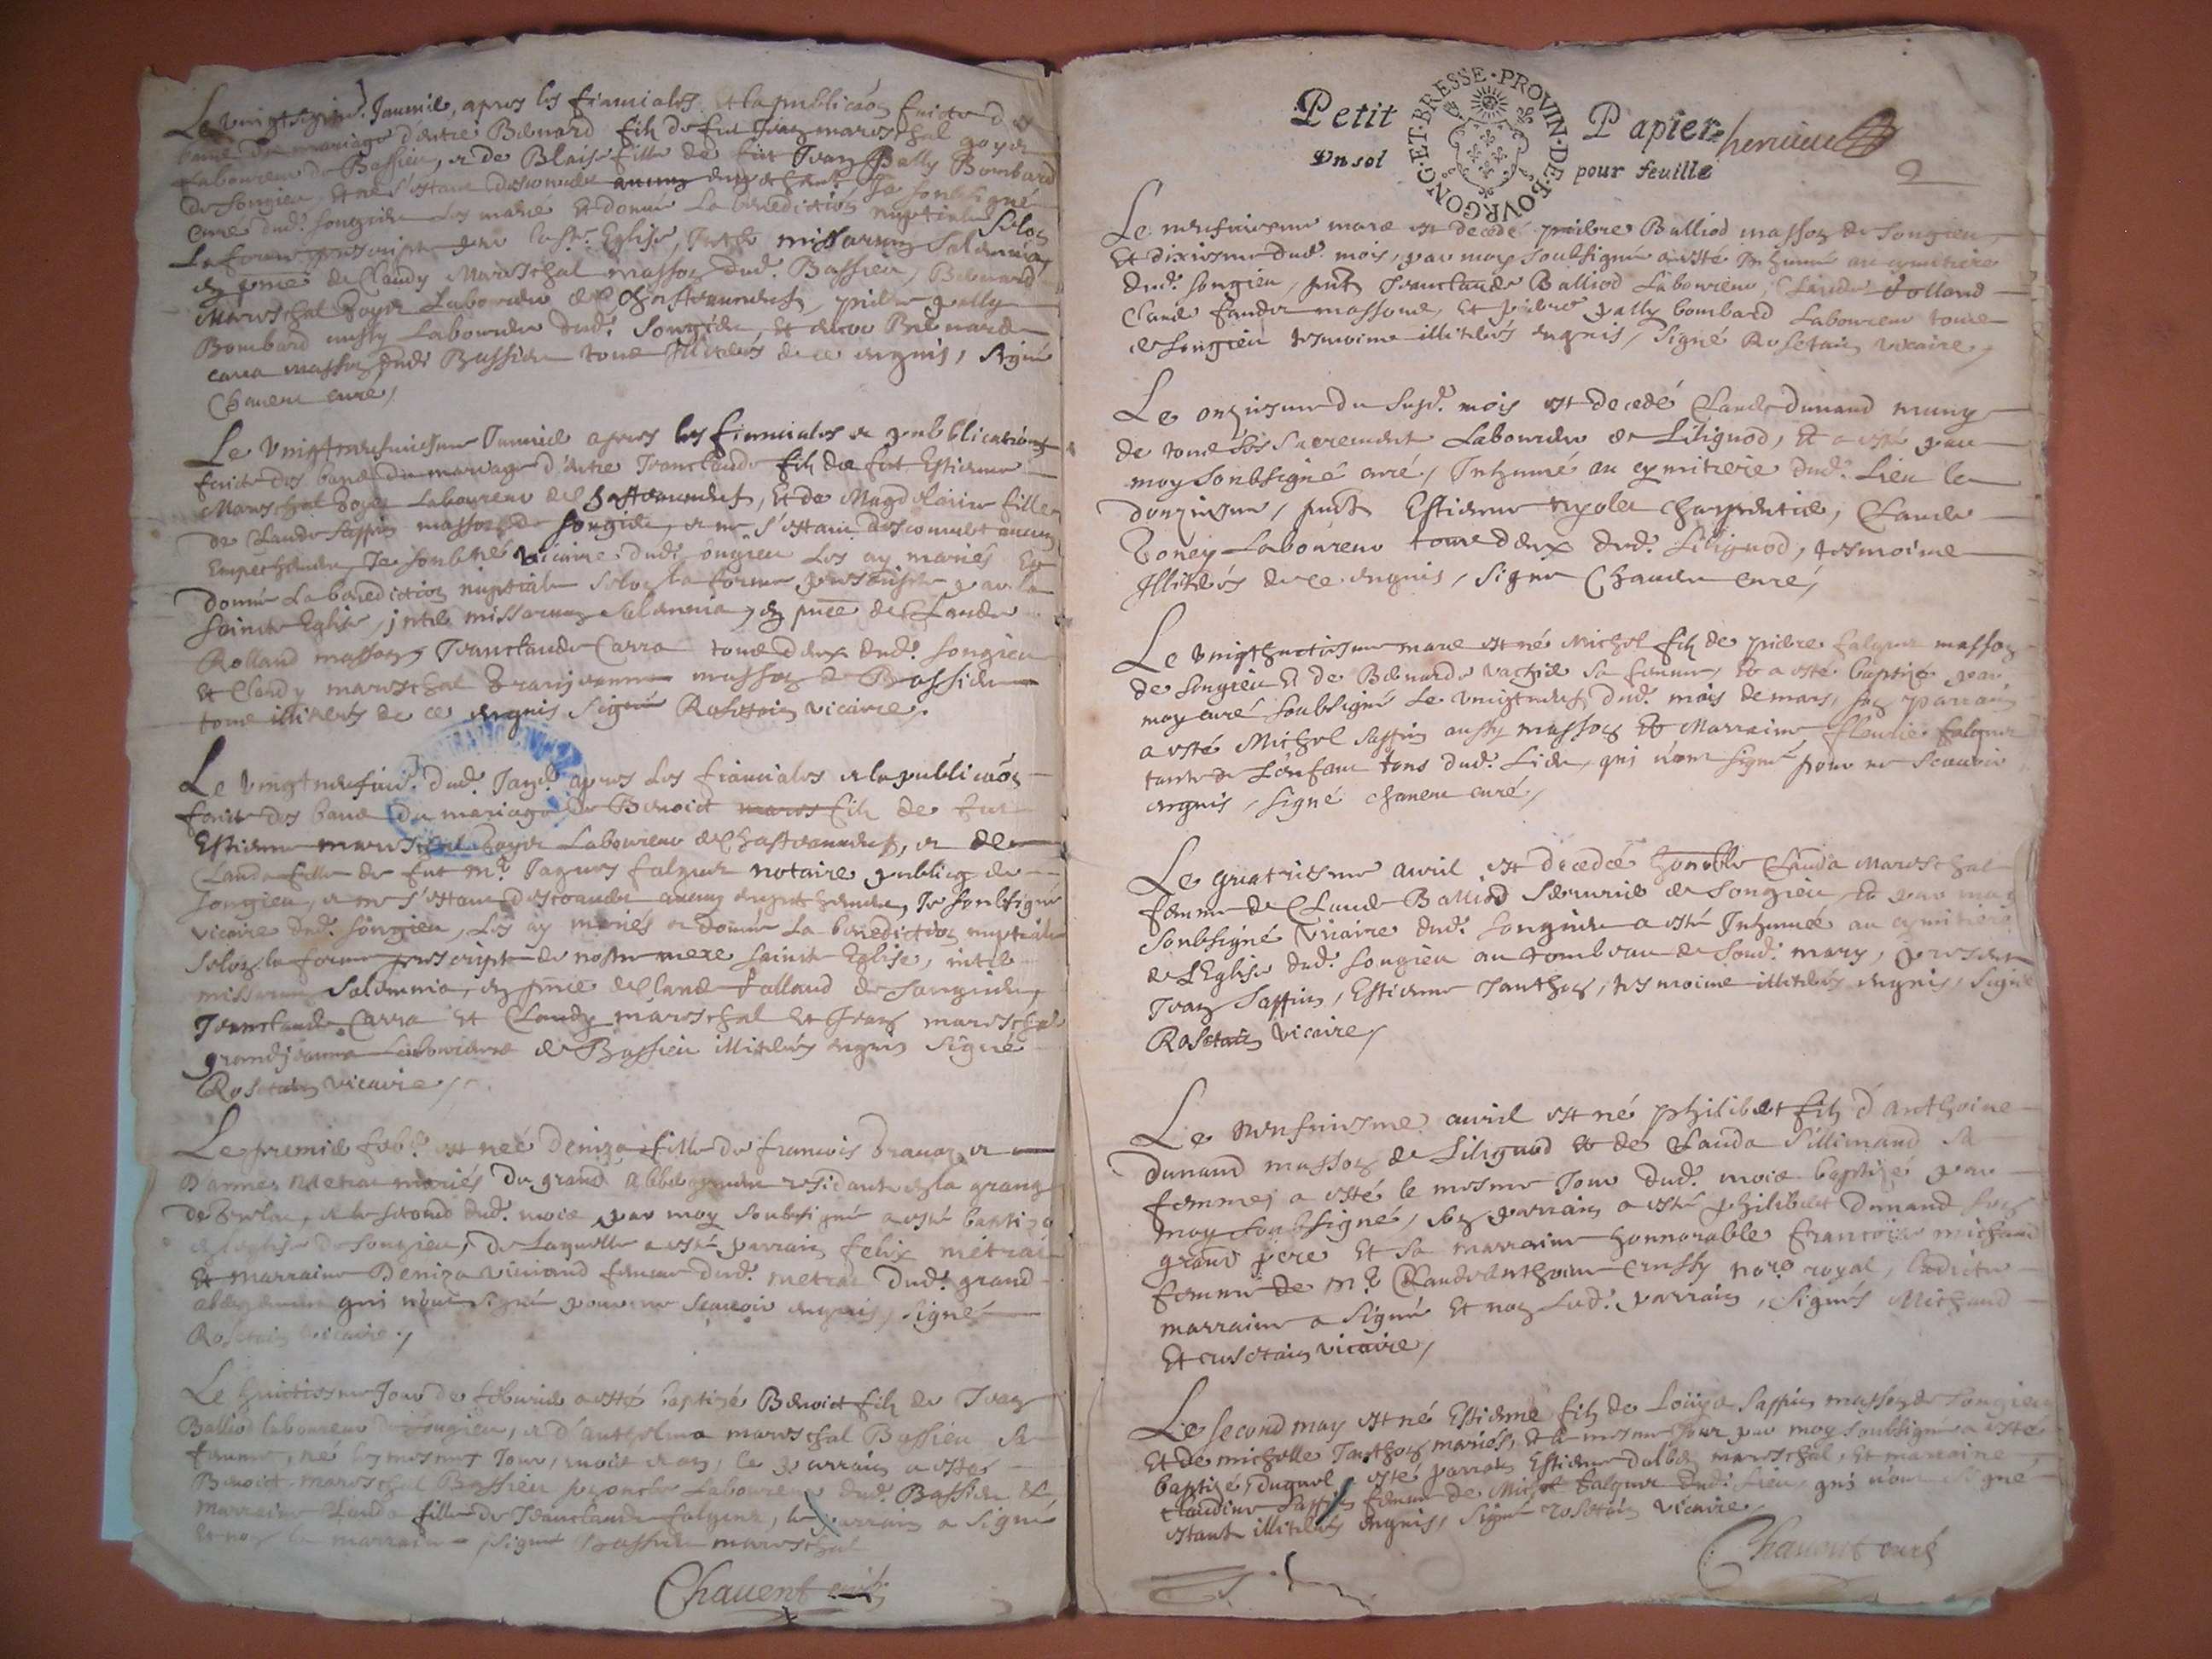 Le vingt Januié, apres les fiancialles et la publicaõn faicte des
bans du mariage d'entre Bernard fils de fut Jean mareschal goyet
Laboureur de Bassieu, et de Blaise fille de fut Jean Pelly Bombard
de Songieu, et ne s'estant descouuert aucung empeschement Je soubsigné
curé dud. Songieu les marié et donné la benediction nuptiale selon
La forme prescripte par la sᵗᵉ Eglise, Intra missarum solemnia,
en pñce de Claudy Mareschal masson dud. Bassieu, Bernard
Mareschal goyet Laboureur de Chasteauneuf, pierre pelly
Bombard aussy Laboureur dud. Songieu, et Bernard
carra masson dud. Bassieu tous Illiterés de ce enquis, signé
Chauent curé,
Le vingtneufuiesme Januié apres les fiancialles et publications
faicte des bans du mariage d'entre Jeanclaude fils de fut Estienne
Mareschal goyet Laboureur de Chasteauneuf, et de Magdelaine fille
de Claude Sappin masson de Songieu, et ne s'estant descouuert aucun
Empeschement, Je soubsné vicaire dud. Songieu Les ay mariés Et
donné La benediction nuptiale selon la forme prescripte par la
saincte Eglise, intra missarum solemnia, en pñce de Claude
Rolland masson, Jeanclaude Carra tous deux dud. Songieu
et Claudy mareschal grandjeanne masson de Bassieu
tous illiterés de ce enquis signé Rosetain vicaire,
Le vingtneufuie. dud. Janᵉ. apres Les fiancialles et la publicaõn
faicte des bans du mariage de Benoict fils de fut
Estienne mareschal goyet Laboureur de Chasteauneuf, et de
Clauda fille de fut mᵉ Jaques falquet notaire publicq de
Songieu, et ne s'estant descouuert aucun empeschement, Je soubsigné
vicaire dud. Songieu, Les ay mariés et donné La benediction nuptiale
selon la forme prescripte de nostre mere saincte Eglise, intra
missarum solemnia, en pñce de Claude Rolland de Songieu,
Jeanclaude Carra et Claudy mareschal et Jean mareschal
grandjeanne Laboureurs de Bassieu illiterés enquis signé
Rosetain vicaire,
Le premié feb. est neé Deniza fille de francois et
D'annes Metral mariés du grand Abbergement residants en la grange
de , et le second dud. mois par moy soubsigné a esté baptizé
en l'eglise de Songieu, de Laquelle a esté parrain felix metral
et marraine Deniza femme dud. metral dud. grand
abergement qui n'ont signé pour ne scauoir enquis, signé
Rosetain vicaire,
Le huictiesme Jour de feburié a esté baptizé Benoict fils de Jean
Balliod laboureur de Songieu, et d'anthelma mareschal Bassieu sa
femme, né les mesmes Jour, mois et an, le parrain a esté
Benoict mareschal Bassieu Laboureur dud. Bassieu et
marraine Clauda fille de Jeanclaude falquet, le parrain a signé
et non la marraine, signé mareschal
Chauent curé
Petit Papier
Vn sol pour feuille
PROVIN·DE·BOVRGONG·ET·BRESSE·
2
Le neufuiesme mars est decedé pierre Balliod masson de Songieu,
Et dixiesme dud. mois, par moy soubsigné a esté Inhumé au cymitiere
dud. Songieu, pñts Jeanclaude Balliod Laboureur, Claude Rolland
Claude massons, Et pierre pelly bombard Laboureur tous
de Songieu tesmoins illiterés enquis, signé Rosetain vicaire,
Le onziesme du susd. mois est decedé Claude Dunand muny
de tous les sacrements Laboureur de Lilignod, et a esté par
moy soubsigné curé, Inhumé au cymitiere dud. Lieu le
douziesme, pñts Estienne charpentié, Claude
Laboureur tous deux dud. Lilignod, tesmoins
Illiterés de ce enquis, signé Chauent curé,
Le vingthuictiesme mars est né Michel fils de pierre falquet masson
de Songieu et de Bernarde vachié sa femme, et a esté baptizé par
moy curé soubsigné Le vingtneuf dud. mois de mars, son parrain
a esté Michel Sappin aussy masson et Marraine fleurie falquet
tante de L'enfant tous dud. Lieu, qui n'ont signé pour ne scauoir
enquis, signé Chauent curé,
Le quatriesme auril est decedeé honorble Clauda Mareschal
femme de Claude Balliod de Songieu, et par moy
soubsigné vicaire dud. Songieu a esté Inhumeé au cymitiere
de L'Eglise dud. Songieu au tombeau de soud. mary, presents
Jean Sappin, Estienne Janthon, tesmoins illiterés enquis, signé
Rosetain vicaire,
Le neufuiesme auril est né philibert fils d'anthoine
dunand masson de Lilignod et de Clauda Sillimand sa
femme, a esté le mesme Jour dud. mois baptizé par
moy soubsigné, son parrain a esté philibert Dunand son
grand pere et sa marraine honnorable francoise michaud
femme de mᵉ Claudeanthoine Crussy noreᵉ royal, ladicte
marraine a signé et non Led. parrain, signés Michaud
Et rosetain vicaire,
Le second may est né Estienne fils de Louys Sappin masson de Songieu
Et de michelle Janthon mariés, et le mesme Jour par moy soubsigné a esté
baptizé, duquel a esté parrain Estienne mareschal, et marraine,
Claudine Sappin femme de Michel falquet dud. Lieu, qui n'ont signé
estants illiterés enquis, signé rosetain vicaire
Chauent curé